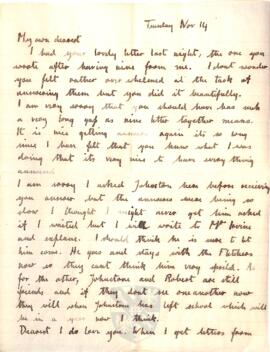 Tuesday Nov 14
My own dearest
I had your lovely letter last night, the one you
wrote after having nine from me. I dont wonder
you felt rather over whelmed at the task of
answering them but you did it beautifully.
I am very sorry that you should have has such
a very long gap as nine letter together means.
It is nice getting answers again its so long
since I have felt that you knew what I was
doing that its very nice to have every thing
answered
I am sorry I asked Johnston here before receiving
your answer but the answers were being so
slow I thought I might never get him asked
if I waited but I will write to Mrs Irvine
and explain. I should think he is sure to let
him come. He goes and stays with the Fletchers
now so they cant think him very frail. As
for the other, Johnston and Robert are still
friends and if they dont see one another now
they will when Johnston has left school which will
be in a year now I think.
Dearest I do love you. When I get letters from